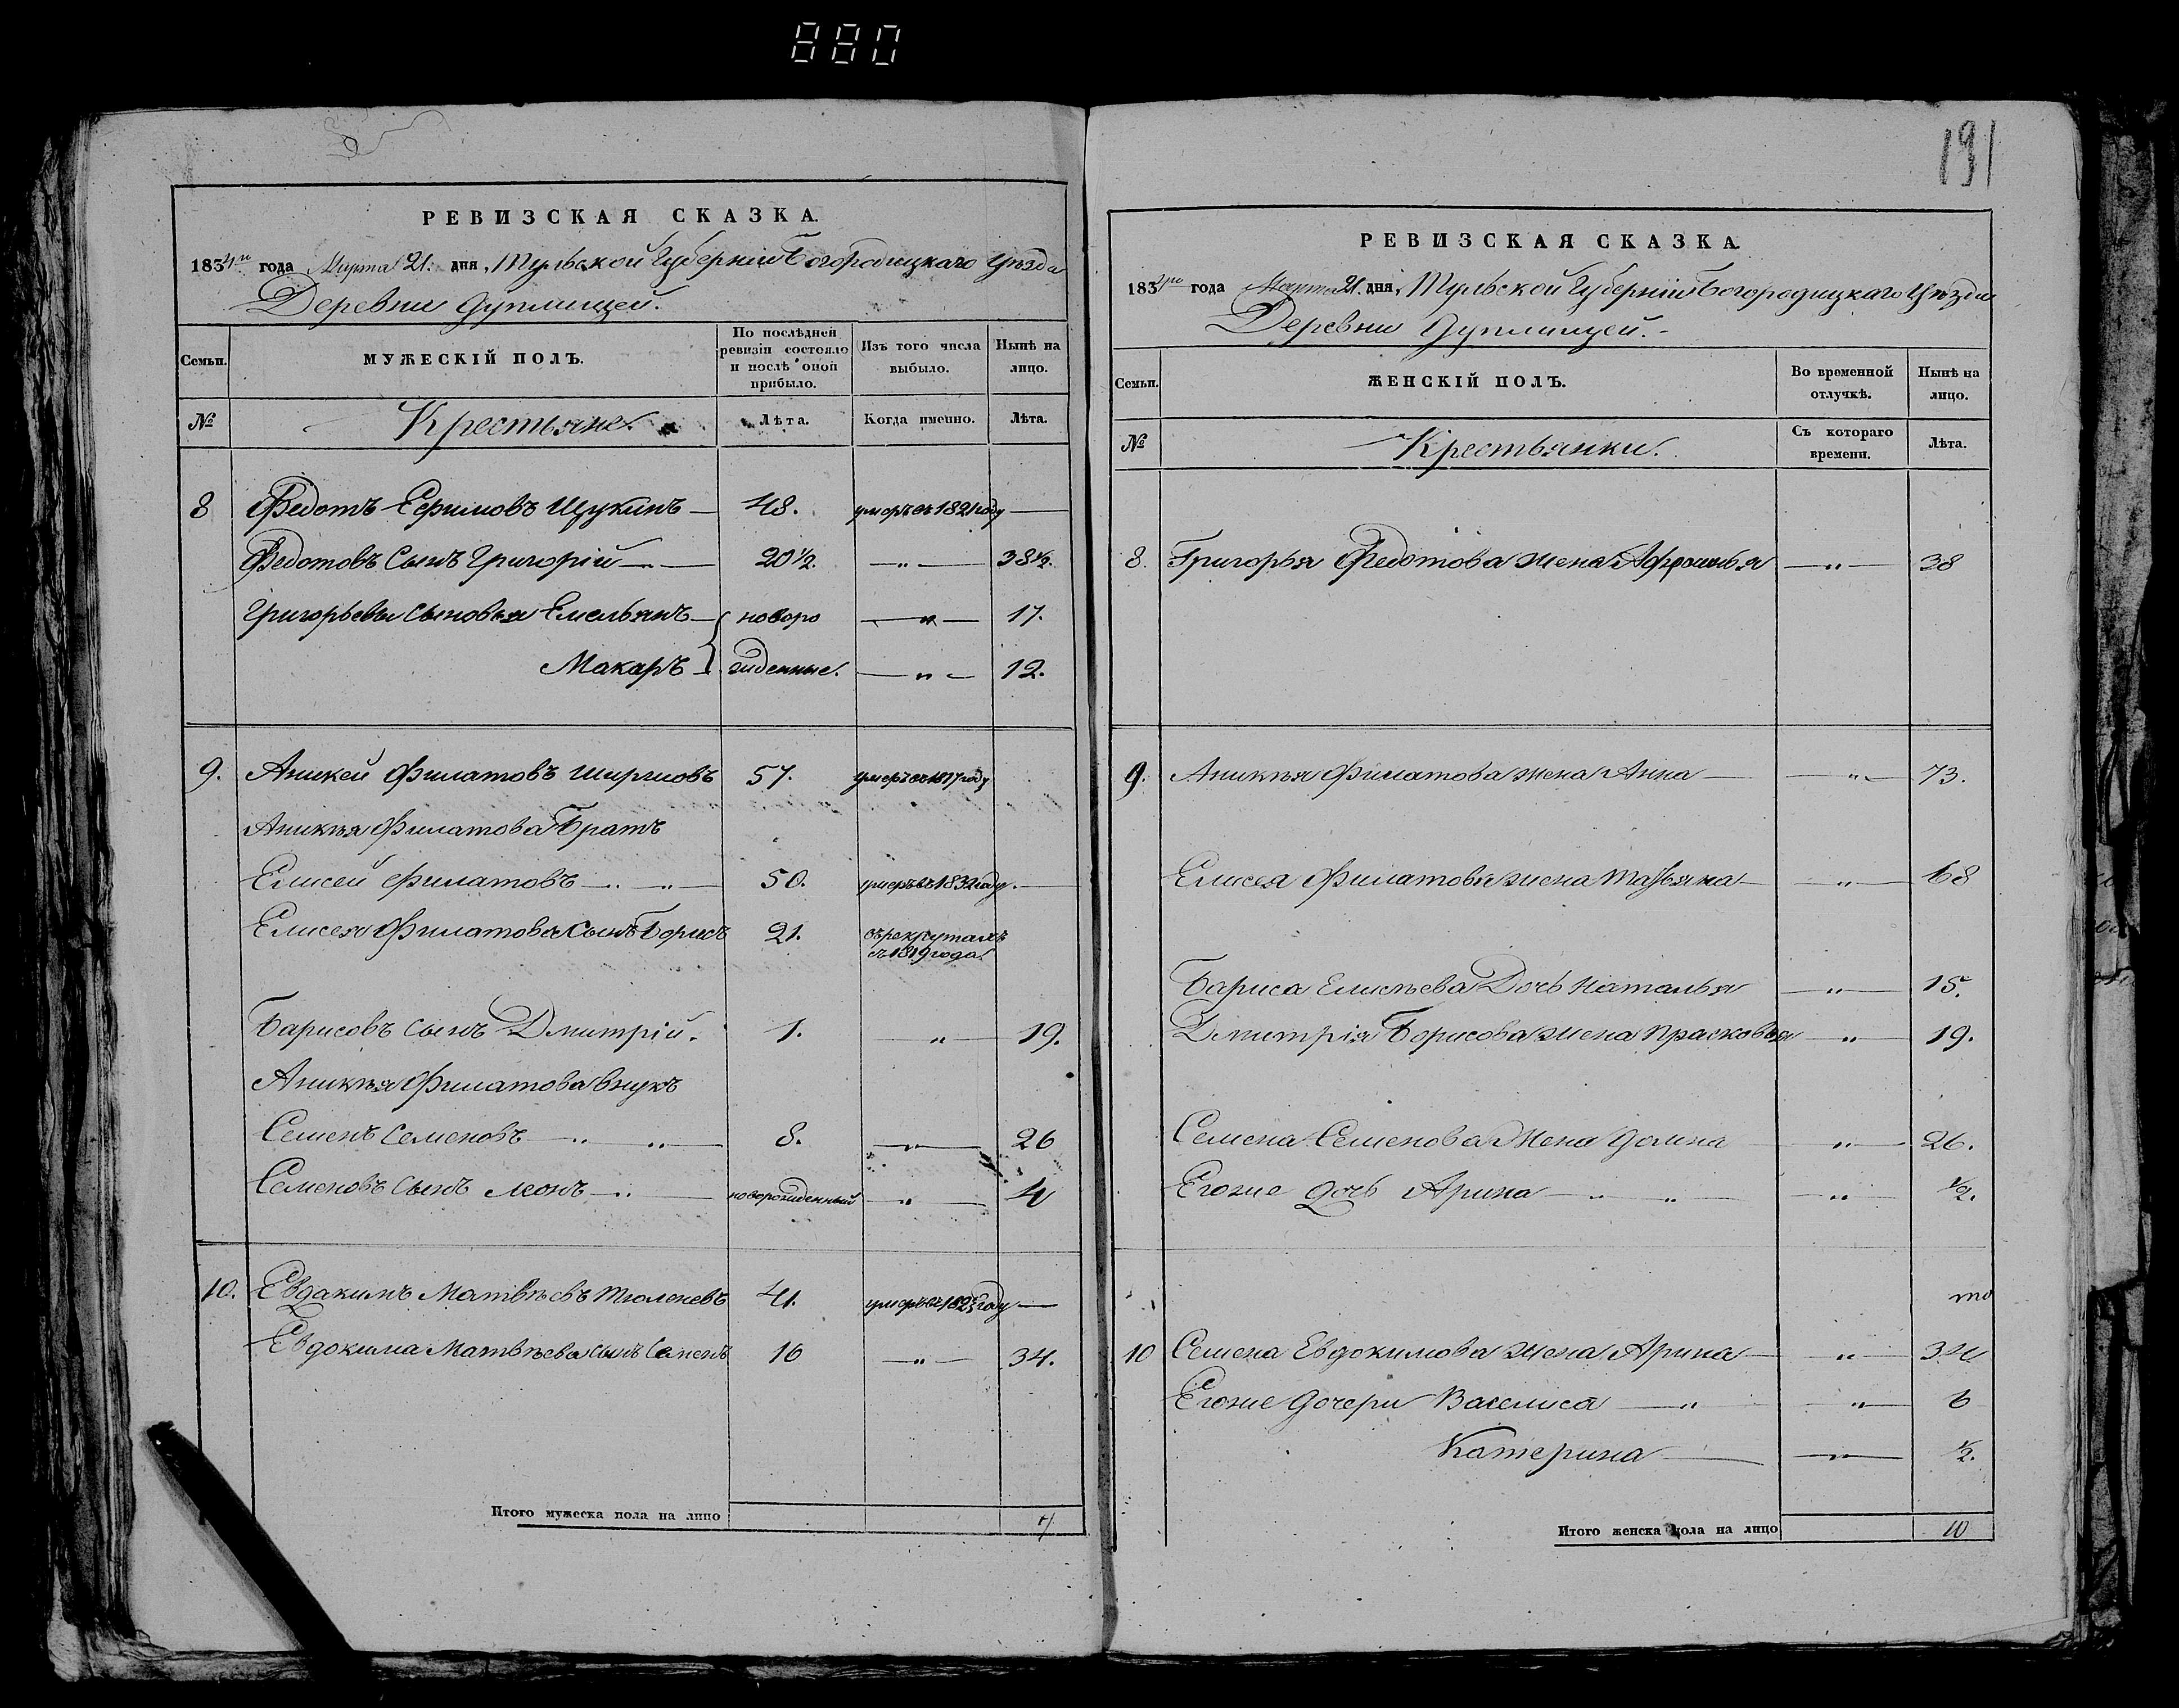 880
РЕВИЗСКАЯ СКАЗКА.
1834го года Марта 21. дня, Тульской Губерніи Богородицкаго Уѣзда
Деревни Дуплищей.
Семьи.
МУЖЕСКІЙ ПОЛЪ.
По послѣдней ревизіи состояло и послѣ оной прибыло.
Изъ того числа выбыло.
Нынѣ на лицо.
№ Крестьяне. Лѣта. Когда именно. Лѣта.
8 Федотъ Ефимовъ Щукинъ — 48. умеръ въ 1821 году —
Федотовъ Сынъ Григорій — 20½. — „ — 38½.
Григорьевы сыновья Емельянъ — новоро — „ — 17.
Макаръ — жденные. — „ — 12.
9. Аникей Филатовъ Ширшовъ 57. умеръ въ 1817 году
Аникѣя Филатова Братъ
Елисей Филатовъ — „ — 50. умеръ въ 1832 году. —
Елисея Филатова сынъ Борисъ 21. въ рекрутахъ
съ 1819 года
Барисовъ сынъ Дмитрій. 1. — „ — 19.
Аникѣя Филатова внукъ
Семенъ Семеновъ — „ „ — 8. — „ — 26
Семеновъ сынъ Леонъ — „ — новорожденный — „ — 4
10. Евдакимъ Матвѣевъ Тюленевъ 41. умеръ въ 1825 году —
Евдокима Матвѣева сынъ Семенъ 16 — „ — 34.
Итого мужеска пола на лицо 7
191
РЕВИЗСКАЯ СКАЗКА.
1834го года Марта 21. дня, Тульской Губерніи Богородицкаго Уѣзда
Деревни Дуплищей. -
Семьи.
ЖЕНСКІЙ ПОЛЪ.
Во временной отлучкѣ.
Нынѣ на лицо.
№ Крестьянки. Съ котораго времени. Лѣта.
8. Григорья Федотова жена Афросинья — „ — 38
9. Аникѣя Филатова жена Анна — — „ — 73.
Елисея Филатова жена Татьяна — — „ — 68
Бариса Елисѣева Дочь Наталья — „ — 15.
Дмитрія Борисова жена Прасковья — „ — 19.
Семена Семенова Жена Домна — „ — 26.
Егоже дочь Арина — „ „ — — „ — ½.
10 Семена Евдокимова жена Арина — — „ — 34
Егоже дочери Васелиса — „ — „ — 6
Катерина — — „ — ½.
Итого женска пола на лицо 10